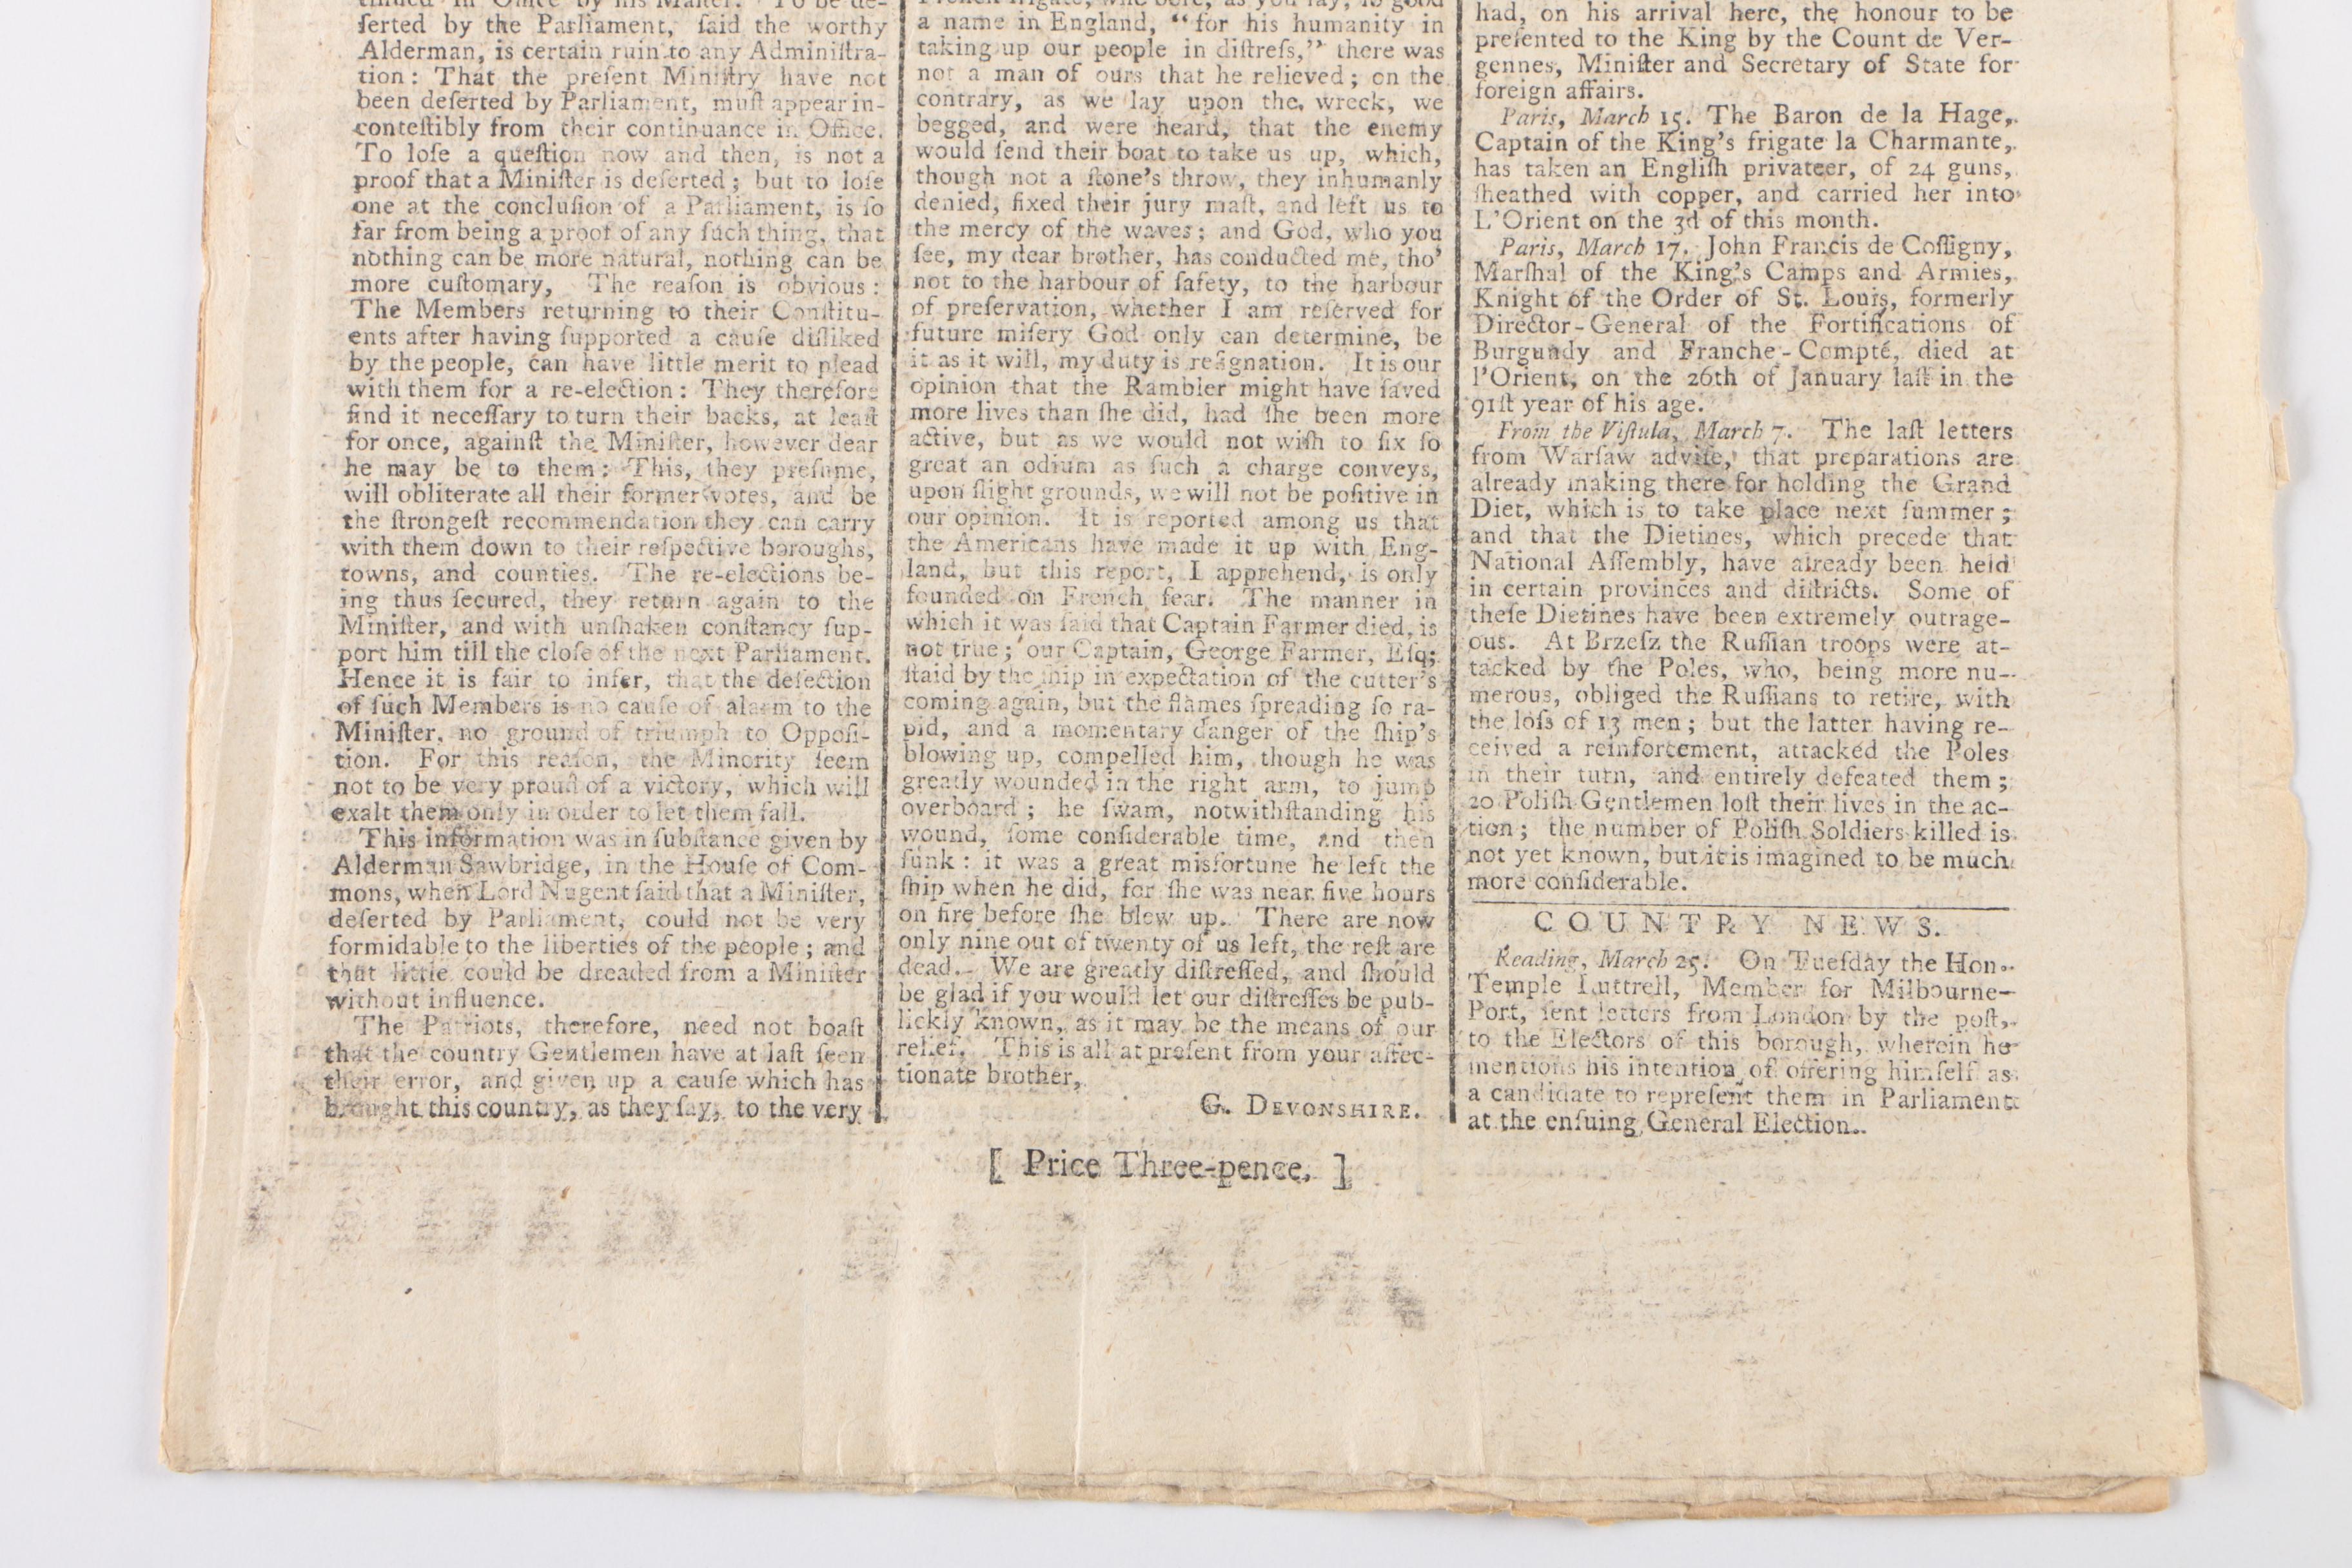 ſerted by the Parliament, ſaid the worthy
Alderman, is certain ruin to any Adminiſtra-
tion: That the preſent Miniſtry have not
been deſerted by Parliament, muſt appear in-
conteſtibly from their continuance in Office.
To loſe a queſtion now and then, is not a
proof that a Miniſter is deſerted; but to loſe
one at the concluſion of a Parliament, is ſo
far from being a proof of any ſuch thing, that
nothing can be more natural, nothing can be
more cuſtomary, The reaſon is obvious:
The Members returning to their Conſtitu-
ents after having ſupported a cauſe diſliked
by the people, can have little merit to plead
with them for a re-election: They therefore
find it neceſſary to turn their backs, at leaſt
for once, againſt the Miniſter, however dear
he may be to them: This, they preſume,
will obliterate all their former votes, and be
the ſtrongeſt recommendation they can carry
with them down to their reſpective boroughs,
towns, and counties. The re-elections be-
ing thus ſecured, they return again to the
Miniſter, and with unſhaken conſtancy ſup-
port him till the cloſe of the next Parliament.
Hence it is fair to infer, that the defection
of ſuch Members is no cauſe of alarm to the
Miniſter, no ground of triumph to Oppoſi-
tion. For this reaſon, the Minority ſeem
not to be very proud of a victory, which will
exalt them only in order to let them fall.
This information was in ſubſtance given by
Alderman Sawbridge, in the Houſe of Com-
mons, when Lord Nugent ſaid that a Miniſter,
deſerted by Parliament, could not be very
formidable to the liberties of the people; and
that little could be dreaded from a Miniſter
without influence.
The Patriots, therefore, need not boaſt
that the country Gentlemen have at laſt ſeen
their error, and given up a cauſe which has
brought this country, as they ſay, to the very
a name in England, "for his humanity in
taking up our people in diſtreſs," there was
not a man of ours that he relieved; on the
contrary, as we lay upon the wreck, we
begged, and were heard, that the enemy
would ſend their boat to take us up, which,
though not a ſtone's throw, they inhumanly
denied, fixed their jury maſt, and left us to
the mercy of the waves; and God, who you
ſee, my dear brother, has conducted me, tho'
not to the harbour of ſafety, to the harbour
of preſervation, whether I am reſerved for
future miſery God only can determine, be
it as it will, my duty is reſignation. It is our
opinion that the Rambler might have ſaved
more lives than ſhe did, had ſhe been more
active, but as we would not wiſh to fix ſo
great an odium as ſuch a charge conveys,
upon ſlight grounds, we will not be poſitive in
our opinion. It is reported among us that
the Americans have made it up with Eng-
land, but this report, I apprehend, is only
founded on French fear. The manner in
which it was ſaid that Captain Farmer died, is
not true; our Captain, George Farmer, Eſq;
ſtaid by the ſhip in expectation of the cutter's
coming again, but the flames ſpreading ſo ra-
pid, and a momentary danger of the ſhip's
blowing up, compelled him, though he was
greatly wounded in the right arm, to jump
overboard; he ſwam, notwithſtanding his
wound, ſome conſiderable time, and then
ſunk: it was a great misfortune he left the
ſhip when he did, for ſhe was near five hours
on fire before ſhe blew up. There are now
only nine out of twenty of us left, the reſt are
dead. We are greatly diſtreſſed, and ſhould
be glad if you would let our diſtreſſes be pub-
lickly known, as it may be the means of our
relief. This is all at preſent from your affec-
tionate brother,
G. DEVONSHIRE.
had, on his arrival here, the honour to be
preſented to the King by the Count de Ver-
gennes, Miniſter and Secretary of State for
foreign affairs.
Paris, March 15. The Baron de la Hage,
Captain of the King's frigate la Charmante,
has taken an Engliſh privateer, of 24 guns,
ſheathed with copper, and carried her into
L'Orient on the 3d of this month.
Paris, March 17. John Francis de Coſſigny,
Marſhal of the King's Camps and Armies,
Knight of the Order of St. Louis, formerly
Director-General of the Fortifications of
Burgundy and Franche-Compté, died at
l'Orient, on the 26th of January laſt in the
91ſt year of his age.
From the Viſtula, March 7. The laſt letters
from Warſaw adviſe, that preparations are
already making there for holding the Grand
Diet, which is to take place next ſummer;
and that the Dietines, which precede that
National Aſſembly, have already been held
in certain provinces and diſtricts. Some of
theſe Dietines have been extremely outrage-
ous. At Brzeſz the Ruſſian troops were at-
tacked by the Poles, who, being more nu-
merous, obliged the Ruſſians to retire, with
the loſs of 13 men; but the latter having re-
ceived a reinforcement, attacked the Poles
in their turn, and entirely defeated them;
20 Poliſh Gentlemen loſt their lives in the ac-
tion; the number of Poliſh Soldiers killed is
not yet known, but it is imagined to be much
more conſiderable.
COUNTRY NEWS.
Reading, March 25. On Tueſday the Hon.
Temple Luttrell, Member for Milbourne-
Port, ſent letters from London by the poſt,
to the Electors of this borough, wherein he
mentions his intention of offering himſelf as
a candidate to repreſent them in Parliament
at the enſuing General Election.
[ Price Three-pence. ]